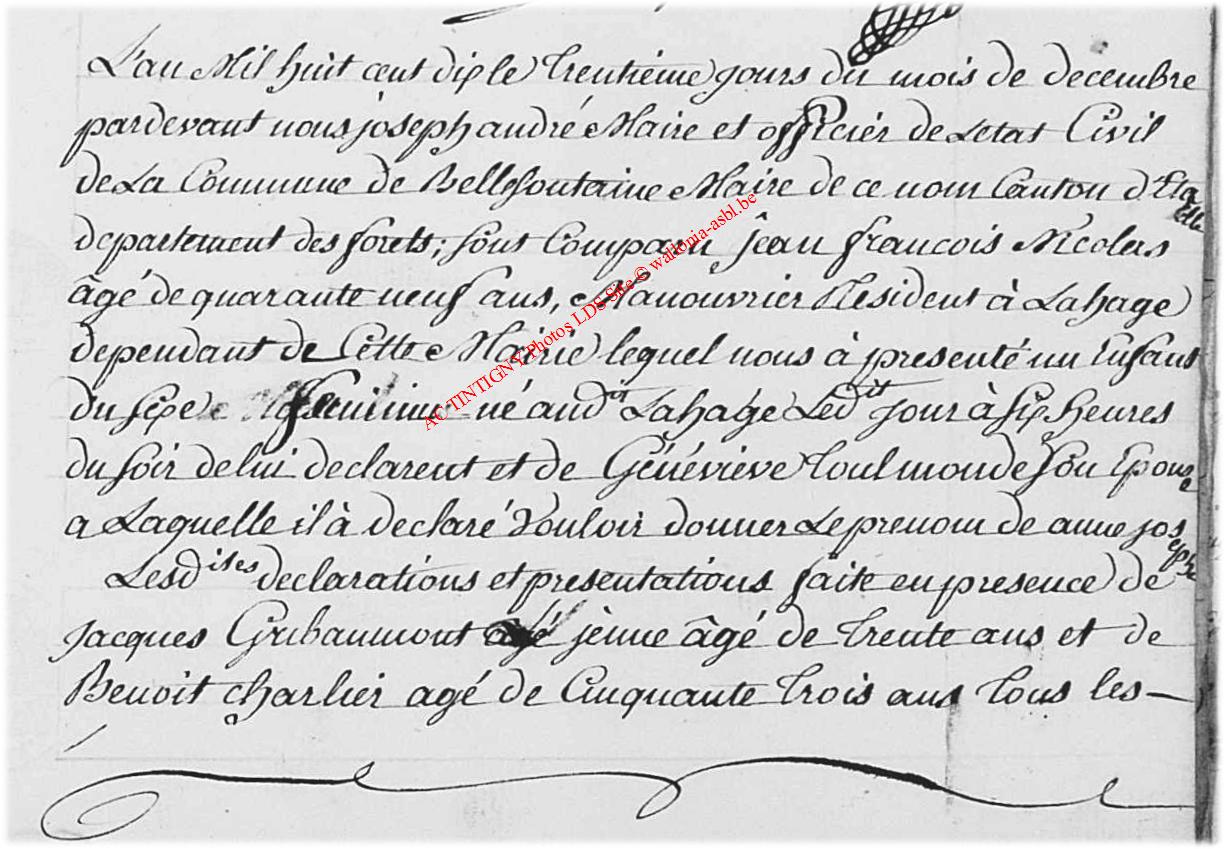 L'an Mil huit cent dix le trentiéme jours du mois de decembre
pardevant nous joseph andré Maire et officiér de Letat Civil
de La Commune de Bellefontaine Maire de ce nom Canton d'Etalle
departement des forets; sont Comparu jean francois Nicolas
âgé de quarante neuf ans, Manouvrier Résident à Lahage
dependant de Cette Mairie lequel nous à presenté un Enfant
du sexe feminine né aud it Lahage Led it jour à six heures
du soir de lui declarent et de Généviéve toulmonde son Epouse
a Laquelle il à declaré vouloir donner Le prenom de anne josephe
Lesd ites declarations et presentations faite en presence de
jacques Gribaumont jeune âgé de trente ans et de
Benoit charlier agé de Cinquante trois ans tous les—
AC-TINTIGNY Photos LDS Site © wallonia-asbl.be